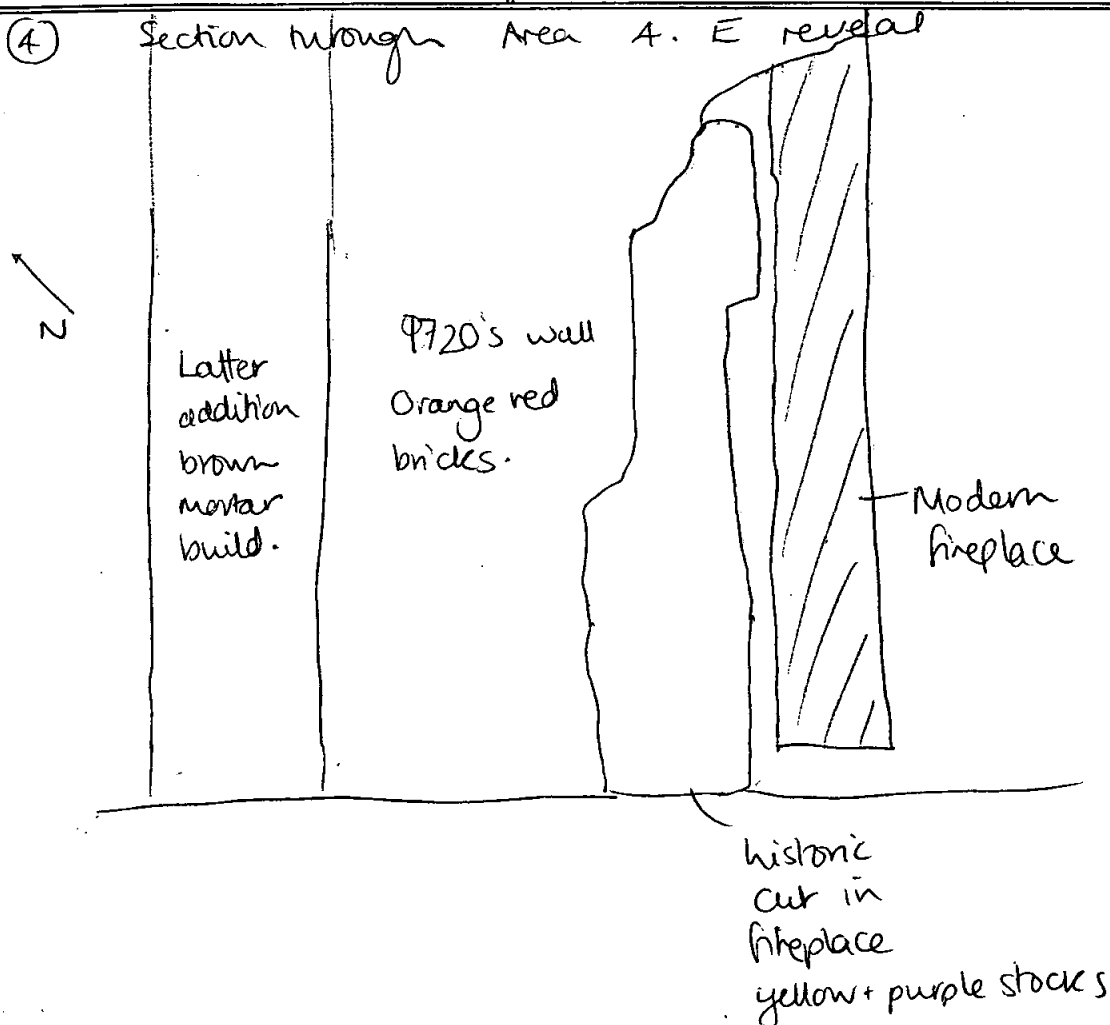 ④ Section through Area 4. E reveal
N
Latter
addition
brown
mortar
build.
1720's wall
Orange red
bricks.
Modern
fireplace
historic
cut in
fireplace
yellow + purple stocks